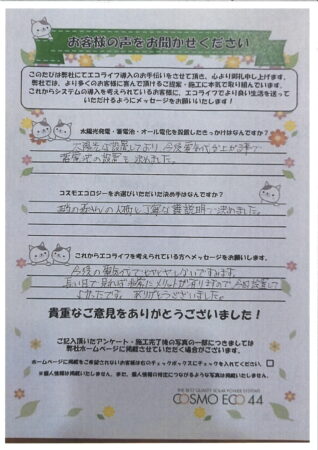 お客様の声をお聞かせください
このたびは弊社にてエコライフ導入のお手伝いをさせて頂き、心より御礼申し上げます。
弊社では、より多くのお客様に喜んで頂けるご提案・施工に本気で取り組んでいます。
これからシステムの導入を考えられているお客様に、エコライフでより良い生活を送って
いただけるようにメッセージをお願いいたします!
太陽光発電・蓄電池・オール電化を設置したきっかけはなんですか?
太陽光は設置しており、今後電気代が上がる事で
蓄電池の設置を決めました。
コスモエコロジーをお選びいただいた決め手はなんですか?
の人柄と丁寧な説明で決めました。
これからエコライフを考えられている方へメッセージをお願いします。
今後の電気代でヒヤヒヤしないですみます。
長い目で見れば メリットがありますので 今回設置して
よかったです。ありがとうございました。
貴重なご意見をありがとうございました!
ご記入頂いたアンケート・施工完了後の写真の一部につきましては
弊社ホームページに掲載させていただく場合がございます。
ホームページに掲載をご希望されないお客様は右のチェックボックスにチェックを入れてください。
※個人情報は掲載いたしません。また、個人情報の特定につながるような写真は掲載いたしません。
THE BEST QUALITY SOLAR POWER SYSTEMS
COSMO ECO 44